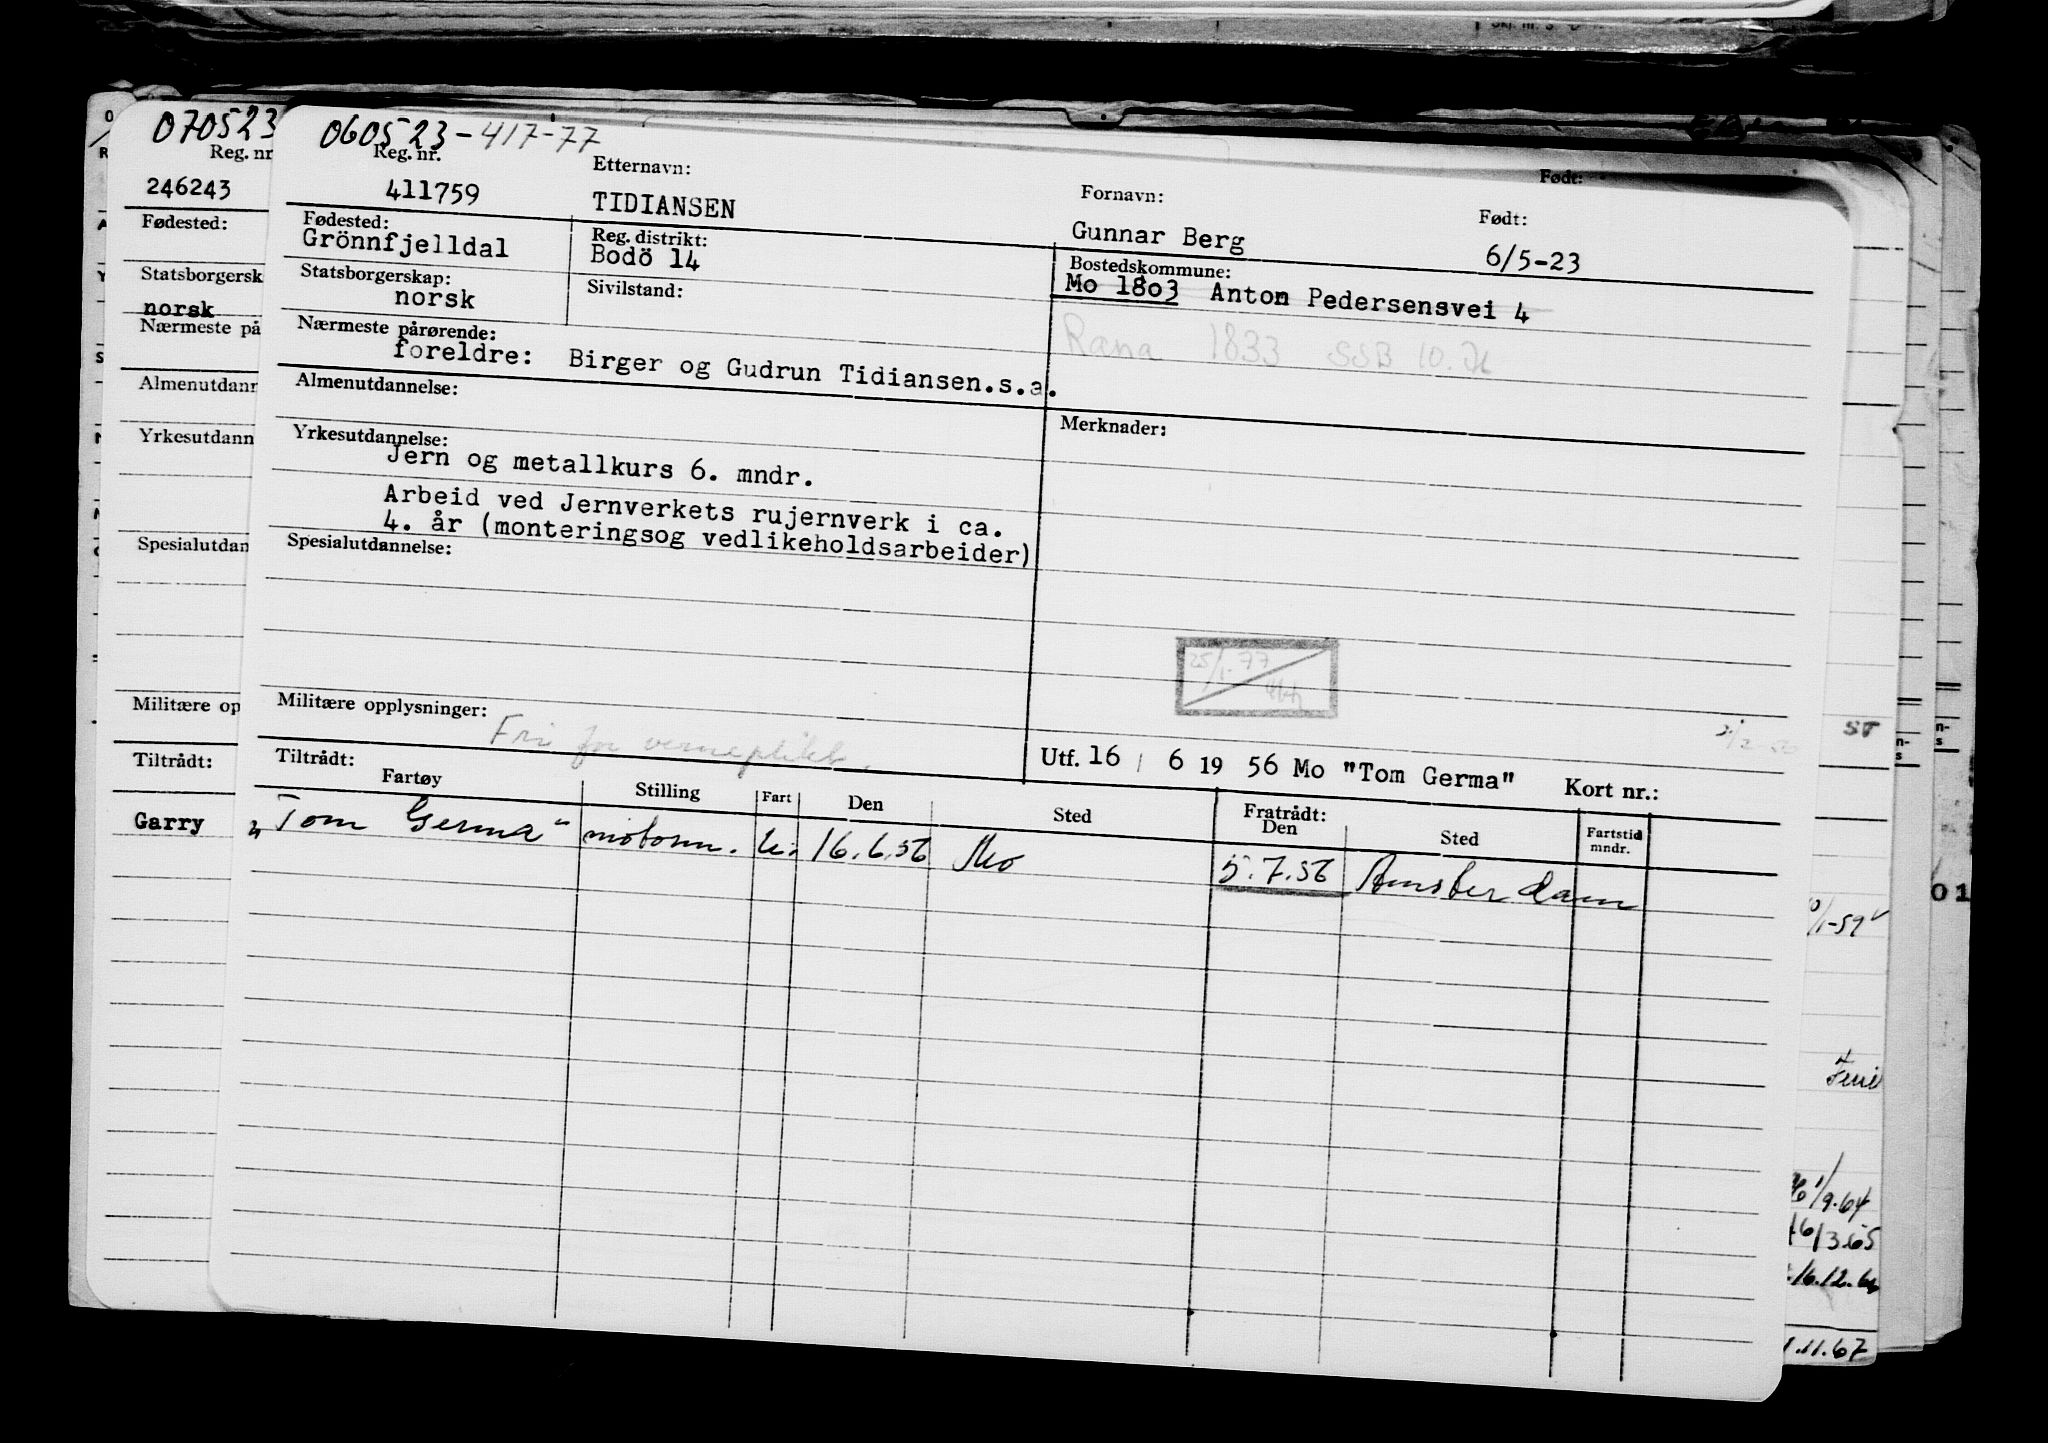 060523-417-77
Reg. nr. Etternavn: Fornavn: Født:
411759 TIDIANSEN Gunnar Berg 6/5-23
Fødested: Reg. distrikt: Bostedskommune:
Grönnfjelldal Bodö 14 Mo 1803 Anton Pedersensvei 4
Statsborgerskap: Sivilstand:
norsk
Rana 1833 SSB 10.
Nærmeste pårørende:
foreldre: Birger og Gudrun Tidiansen.s.a.
Almenutdannelse: Merknader:
Yrkesutdannelse:
Jern og metallkurs 6. mndr.
Arbeid ved Jernverkets rujernverk i ca.
4. år (monteringsog vedlikeholdsarbeider)
Spesialutdannelse:
25/1-77
Militære opplysninger:
Fri for verneplikt.
Utf. 16 / 6 19 56 Mo "Tom Germa" Kort nr.:
Tiltrådt: Fratrådt:
Fartøy Stilling Fart Den Sted Den Sted Fartstid mndr.
"Tom Germa" motorm. U. 16.6.56 Mo 5.7.56 Amsterdam
070523
Reg. nr
246243
Fødested:
Statsborgersk
norsk
Nærmeste på
Almenutdann
Yrkesutdann
Spesialutdan
Militære op
Tiltrådt:
Garry
Født:
ST
01
/1-59
Ferie
1/9.64
16/3.65
16.12.66
.11.67